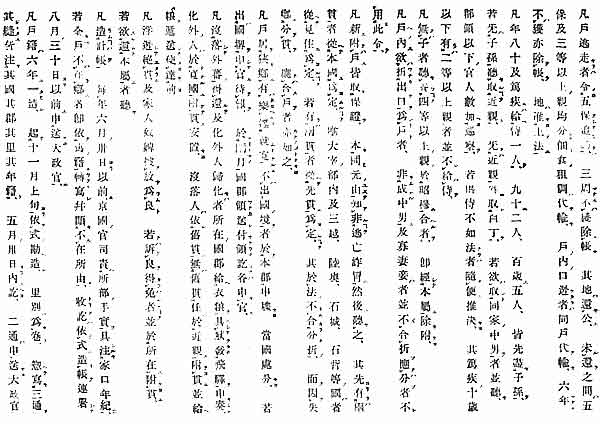 凡戶逃走者令五保追訪 三周不獲除帳 其地還公 未還之間五
保及三等以上親均分佃食租調代輸 戶內口逃者同戶代輸 六年
不獲亦除帳 地准上法
凡年八十及篤疾給侍一人 九十二人 百歲五人 皆先盡子孫
若无子孫聽取近親 无近親外取白丁 若欲取同家中男者並聽
郡領以下官人數加巡察 若供侍不如法者隨便推決 其篤疾十歲
以下有二等以上親者並不給侍
凡無子者聽養四等以上親於昭穆合者 卽經本屬除附
凡戶內欲析出口為戶者 非成中男及寡妻妾者並不合析應分者不
用此令
凡新附戶皆取保證 本國元由知非逃亡詐冒然後聽之 其先有兩
貫者從本國為定 唯大宰部內及三越 陸奧 石城 石背等國者
從見住為定 若有兩貫者從先貫為定 其於法不合分析 而因失
鄉分貫 應合戶者亦如之
凡戶居狹鄉有樂遷就寬不出國境者於本郡申牒 當國處分 若
出國堺申官待報 於閑月國郡領送付領訖各申官
凡沒落外蕃得還及化外人歸化者所在國郡給衣粮具狀發飛驛申奏
化外人於寬國附貫安置 沒落人依舊貫無舊貫任於近親附貫並給
粮遞送使達前
凡浮逃絕貫及家人奴婢被放為良 若訴良得免者並於所在附貫
若欲還本屬者聽
凡造計帳 每年六月卅日以前京國官司責所部手實具注家口年紀
若全戶不在鄉者卽依舊籍轉寫幷顯不在所由 收訖依式造帳連署
八月三十日以前申送大政官
凡戶籍六年一造 起十一月上旬依式勘造 里別為卷 惣寫三通
其縫皆注其國其郡其里其年籍 五月卅日內訖 二通申送大政官